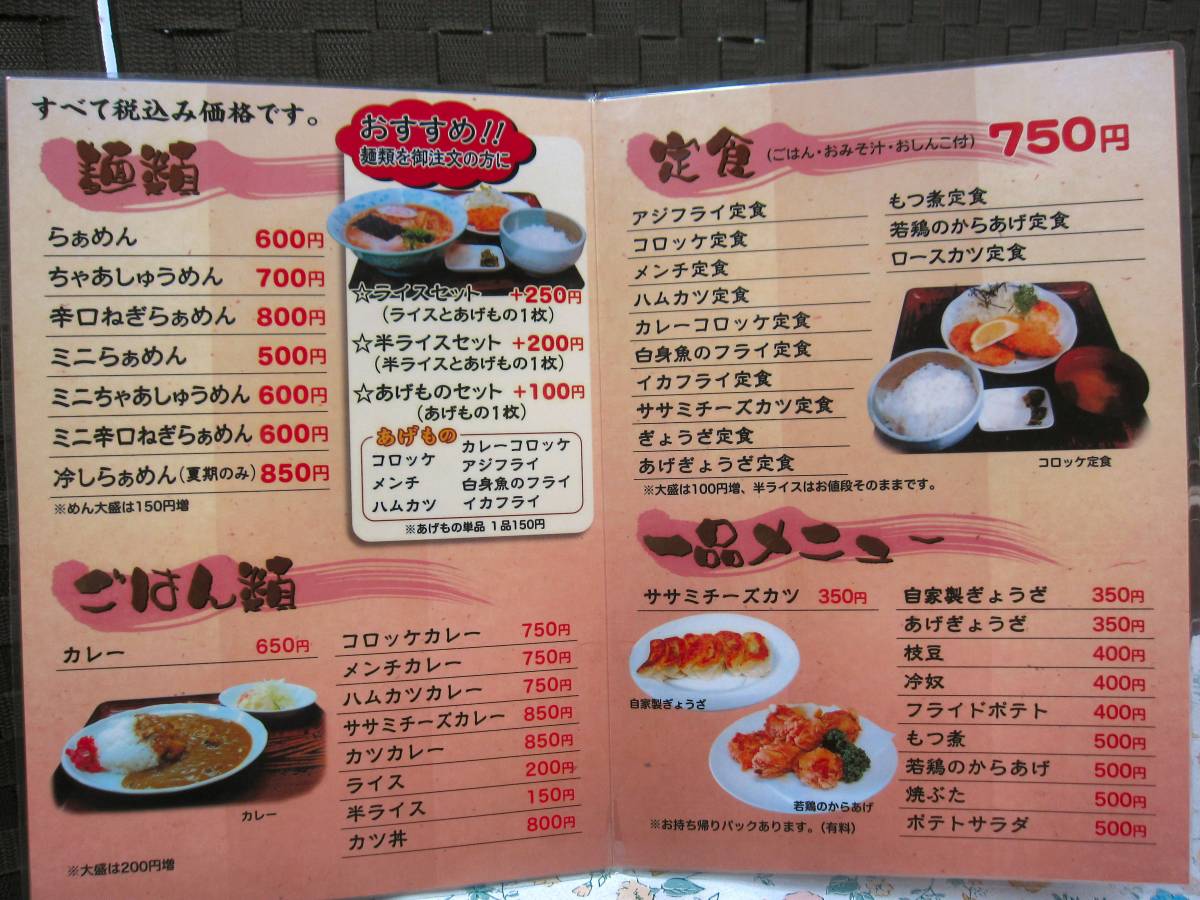 すべて税込み価格です。
麺類
らぁめん 600円
ちゃあしゅうめん 700円
辛口ねぎらぁめん 800円
ミニらぁめん 500円
ミニちゃあしゅうめん 600円
ミニ辛口ねぎらぁめん 600円
冷しらぁめん(夏期のみ) 850円
※めん大盛は150円増
おすすめ!!
麺類を御注文の方に
☆ライスセット +250円
(ライスとあげもの1枚)
☆半ライスセット +200円
(半ライスとあげもの1枚)
☆あげものセット +100円
(あげもの1枚)
あげもの
コロッケ
メンチ
ハムカツ
カレーコロッケ
アジフライ
白身魚のフライ
イカフライ
※あげもの単品 1品150円
ごはん類
カレー 650円
カレー
※大盛は200円増
コロッケカレー 750円
メンチカレー 750円
ハムカツカレー 750円
ササミチーズカレー 850円
カツカレー 850円
ライス 200円
半ライス 150円
カツ丼 800円
定食 (ごはん・おみそ汁・おしんこ付) 750円
アジフライ定食
コロッケ定食
メンチ定食
ハムカツ定食
カレーコロッケ定食
白身魚のフライ定食
イカフライ定食
ササミチーズカツ定食
ぎょうざ定食
あげぎょうざ定食
もつ煮定食
若鶏のからあげ定食
ロースカツ定食
コロッケ定食
※大盛は100円増、半ライスはお値段そのままです。
一品メニュー
ササミチーズカツ 350円
自家製ぎょうざ
若鶏のからあげ
※お持ち帰りパックあります。(有料)
自家製ぎょうざ 350円
あげぎょうざ 350円
枝豆 400円
冷奴 400円
フライドポテト 400円
もつ煮 500円
若鶏のからあげ 500円
焼ぶた 500円
ポテトサラダ 500円